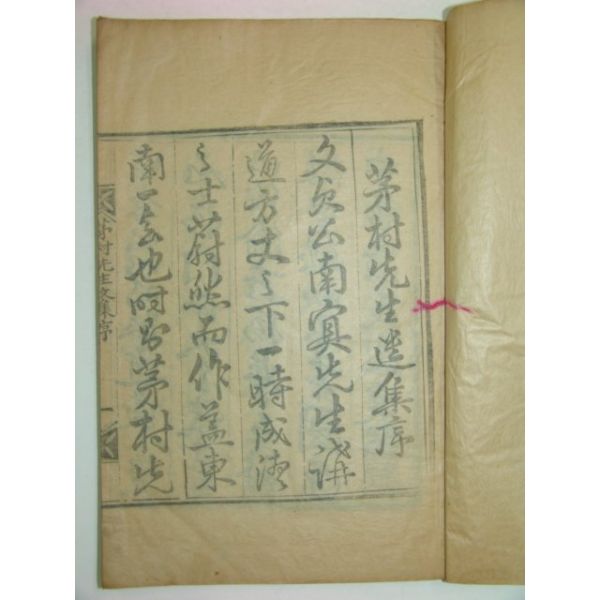 茅村先生遺集序
文貞公南冥先生講
道方丈之下一時成德
之士蔚然而作盖東
南一會也時則茅村先
茅村先生文集序 一